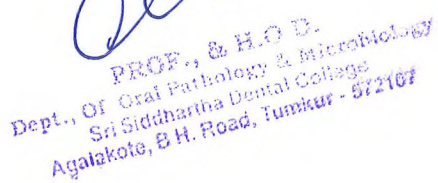 PROF., & H.O D.
Dept., Of Oral Pathology & Microbiology
Sri Siddhartha Dental College
Agalakote, B H. Road, Tumkur - 572107